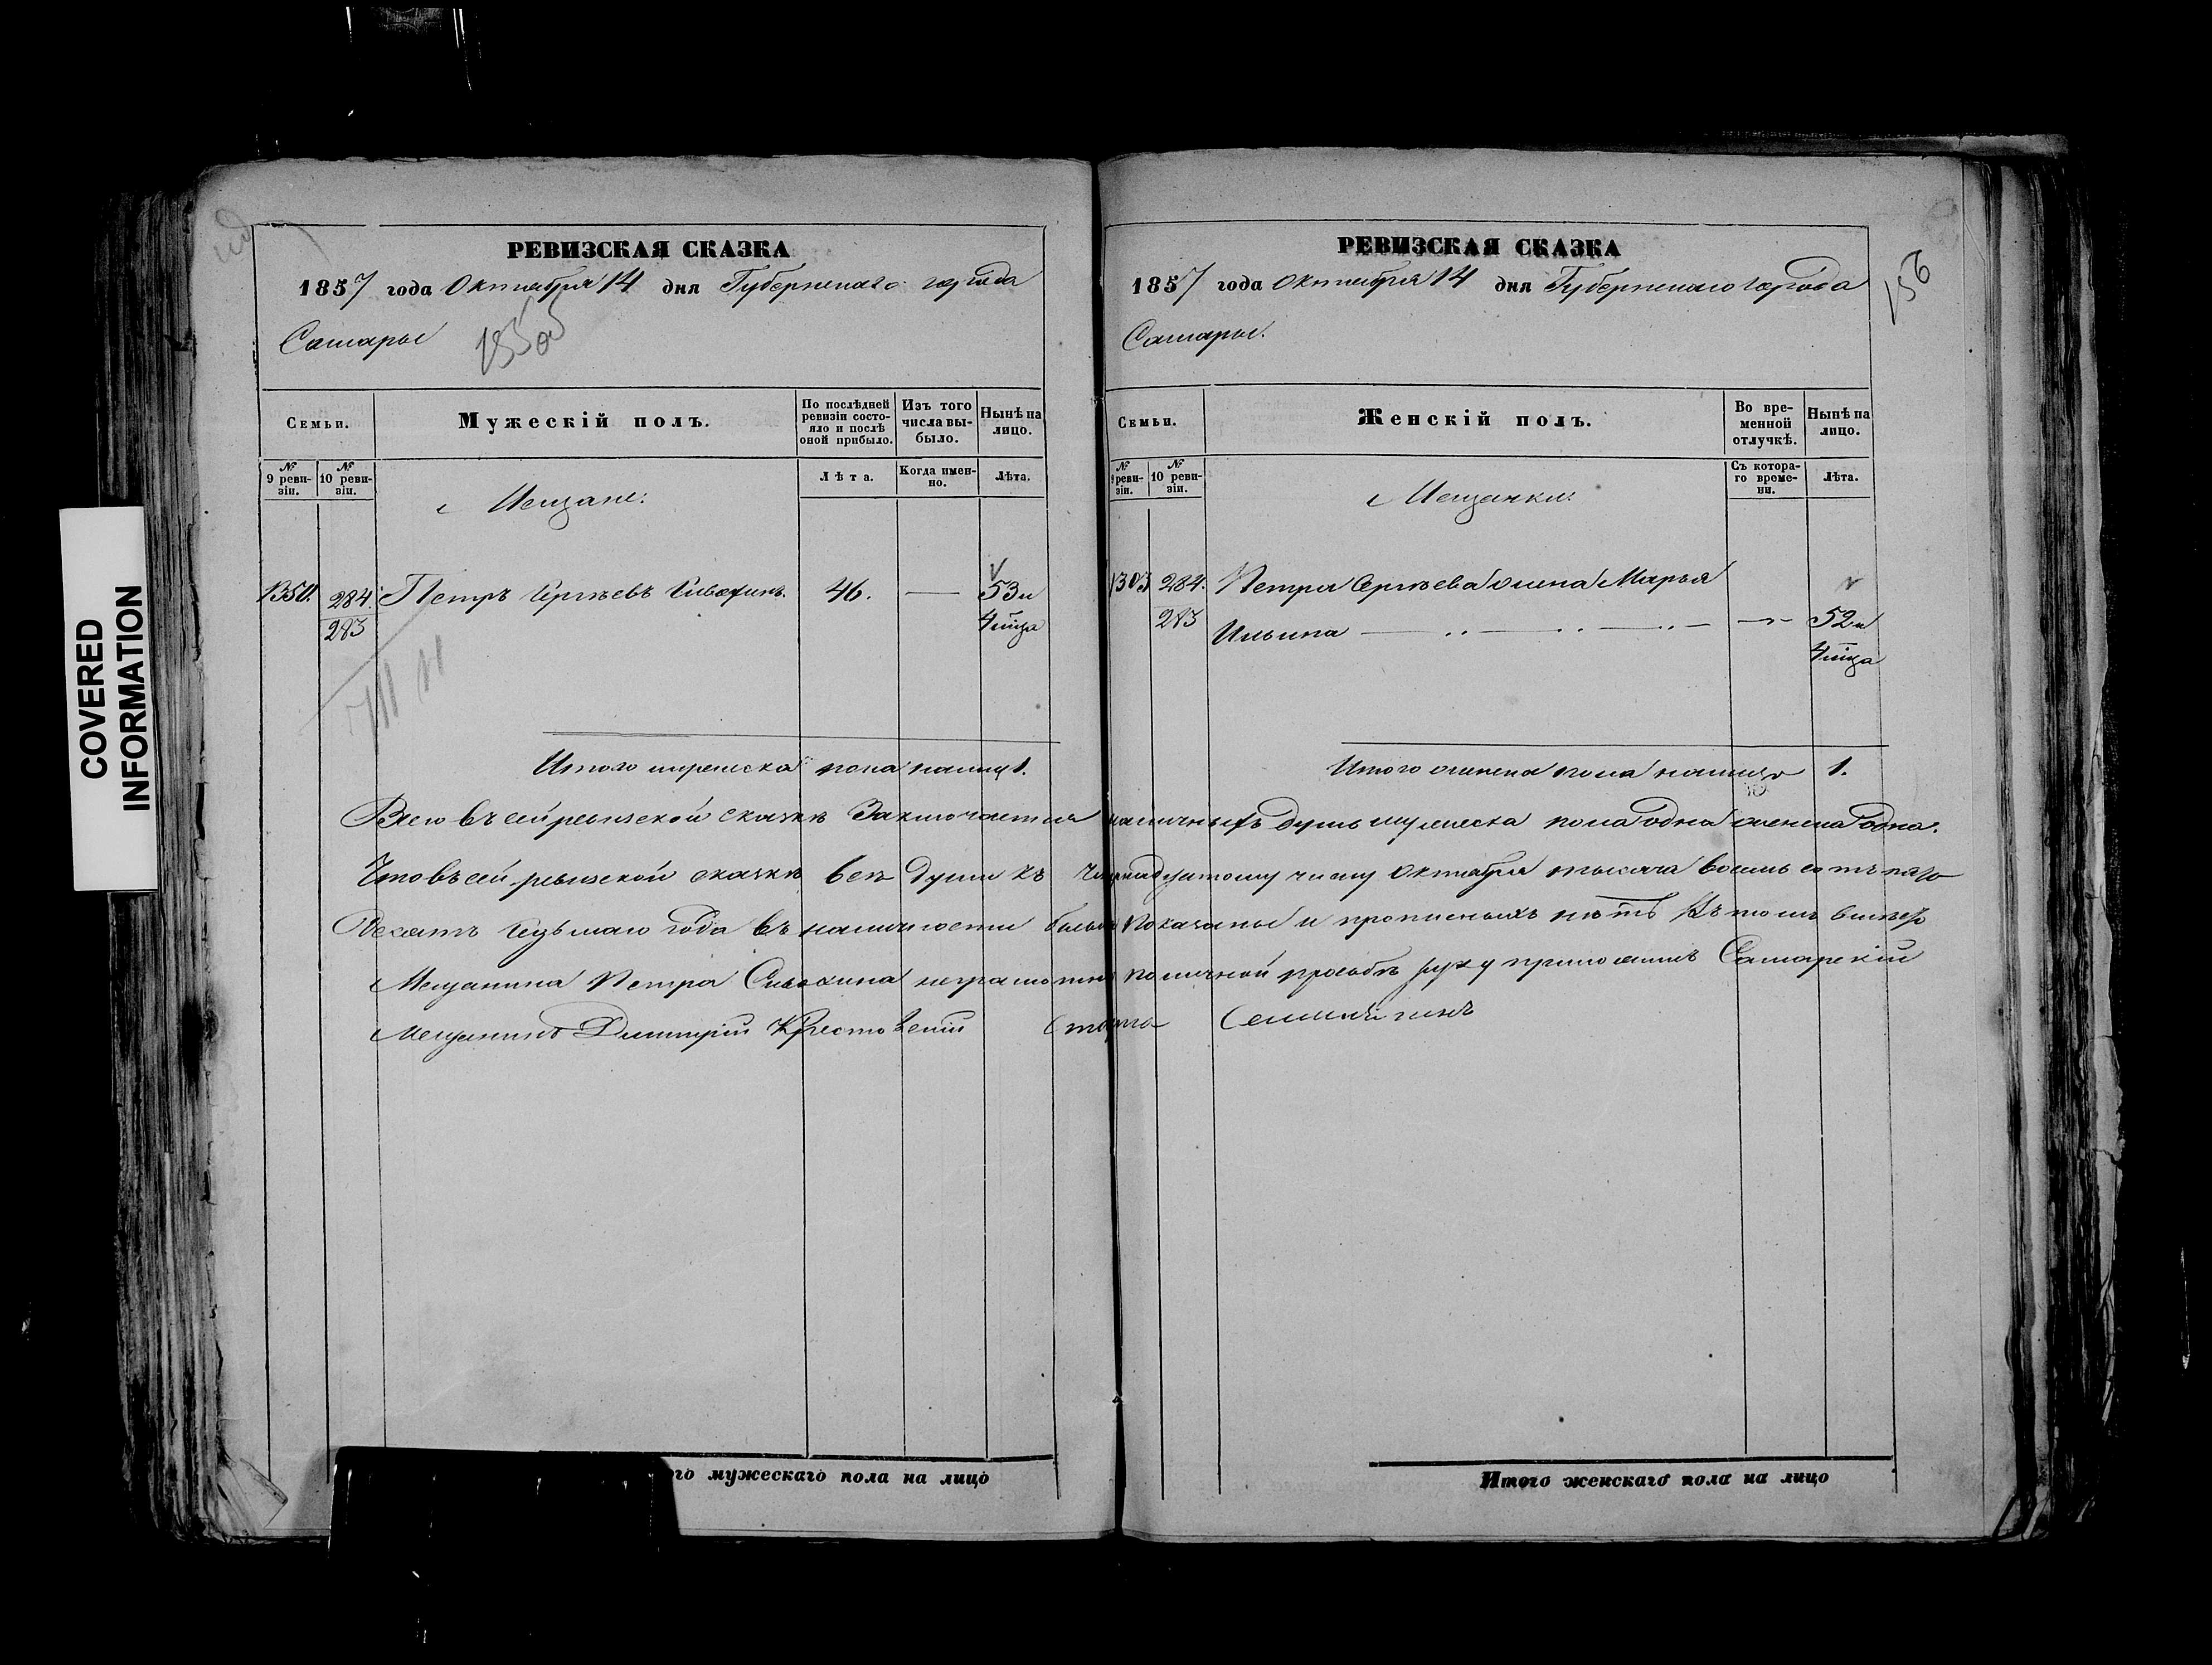 COVERED
INFORMATION
РЕВИЗСКАЯ СКАЗКА
1857 года Октября 14 дня Губернскаго города
Самары
155об
Семьи.
Мужескій полъ.
По послѣдней ревизіи состояло и послѣ оной прибыло.
Изъ того числа выбыло.
Нынѣ на лицо.
№ 9 ревизіи.
№ 10 ревизіи.
Лѣта.
Когда именно.
Лѣта.
Мещане:
1350. 284. Петръ Сергѣевъ 46. — 53 и
283 4 мца
Итого мужеска пола налицо 1.
РЕВИЗСКАЯ СКАЗКА
156
1857 года Октября 14 дня Губернскаго города
Самары.
Семьи.
Женскій полъ.
Во временной отлучкѣ.
Нынѣ на лицо.
№ 9 ревизіи.
№ 10 ревизіи.
Съ котораго времени.
Лѣта.
Мещанки:
284. Петра Сергѣева жена Марья
283 Ильина — 52 и
4 мца
Итого женска пола налицо 1.
Всего въ сей ревизской сказкѣ Заключается наличныхъ душъ мужеска пола одна женска одна.
Что въ сей ревизской сказкѣ всѣ души къ четырнадцатому числу Октября тысяча восемь сотъ пять
десятъ седьмаго года въ наличности были показаны и прописныхъ нѣтъ Въ томъ вмѣсто
Мещанина Петра неграмотн по личной прозьбѣ руку приложилъ Самарскій
Мещанинъ Дмитрій Крестовскій
Итого мужескаго пола на лицо
Итого женскаго пола на лицо